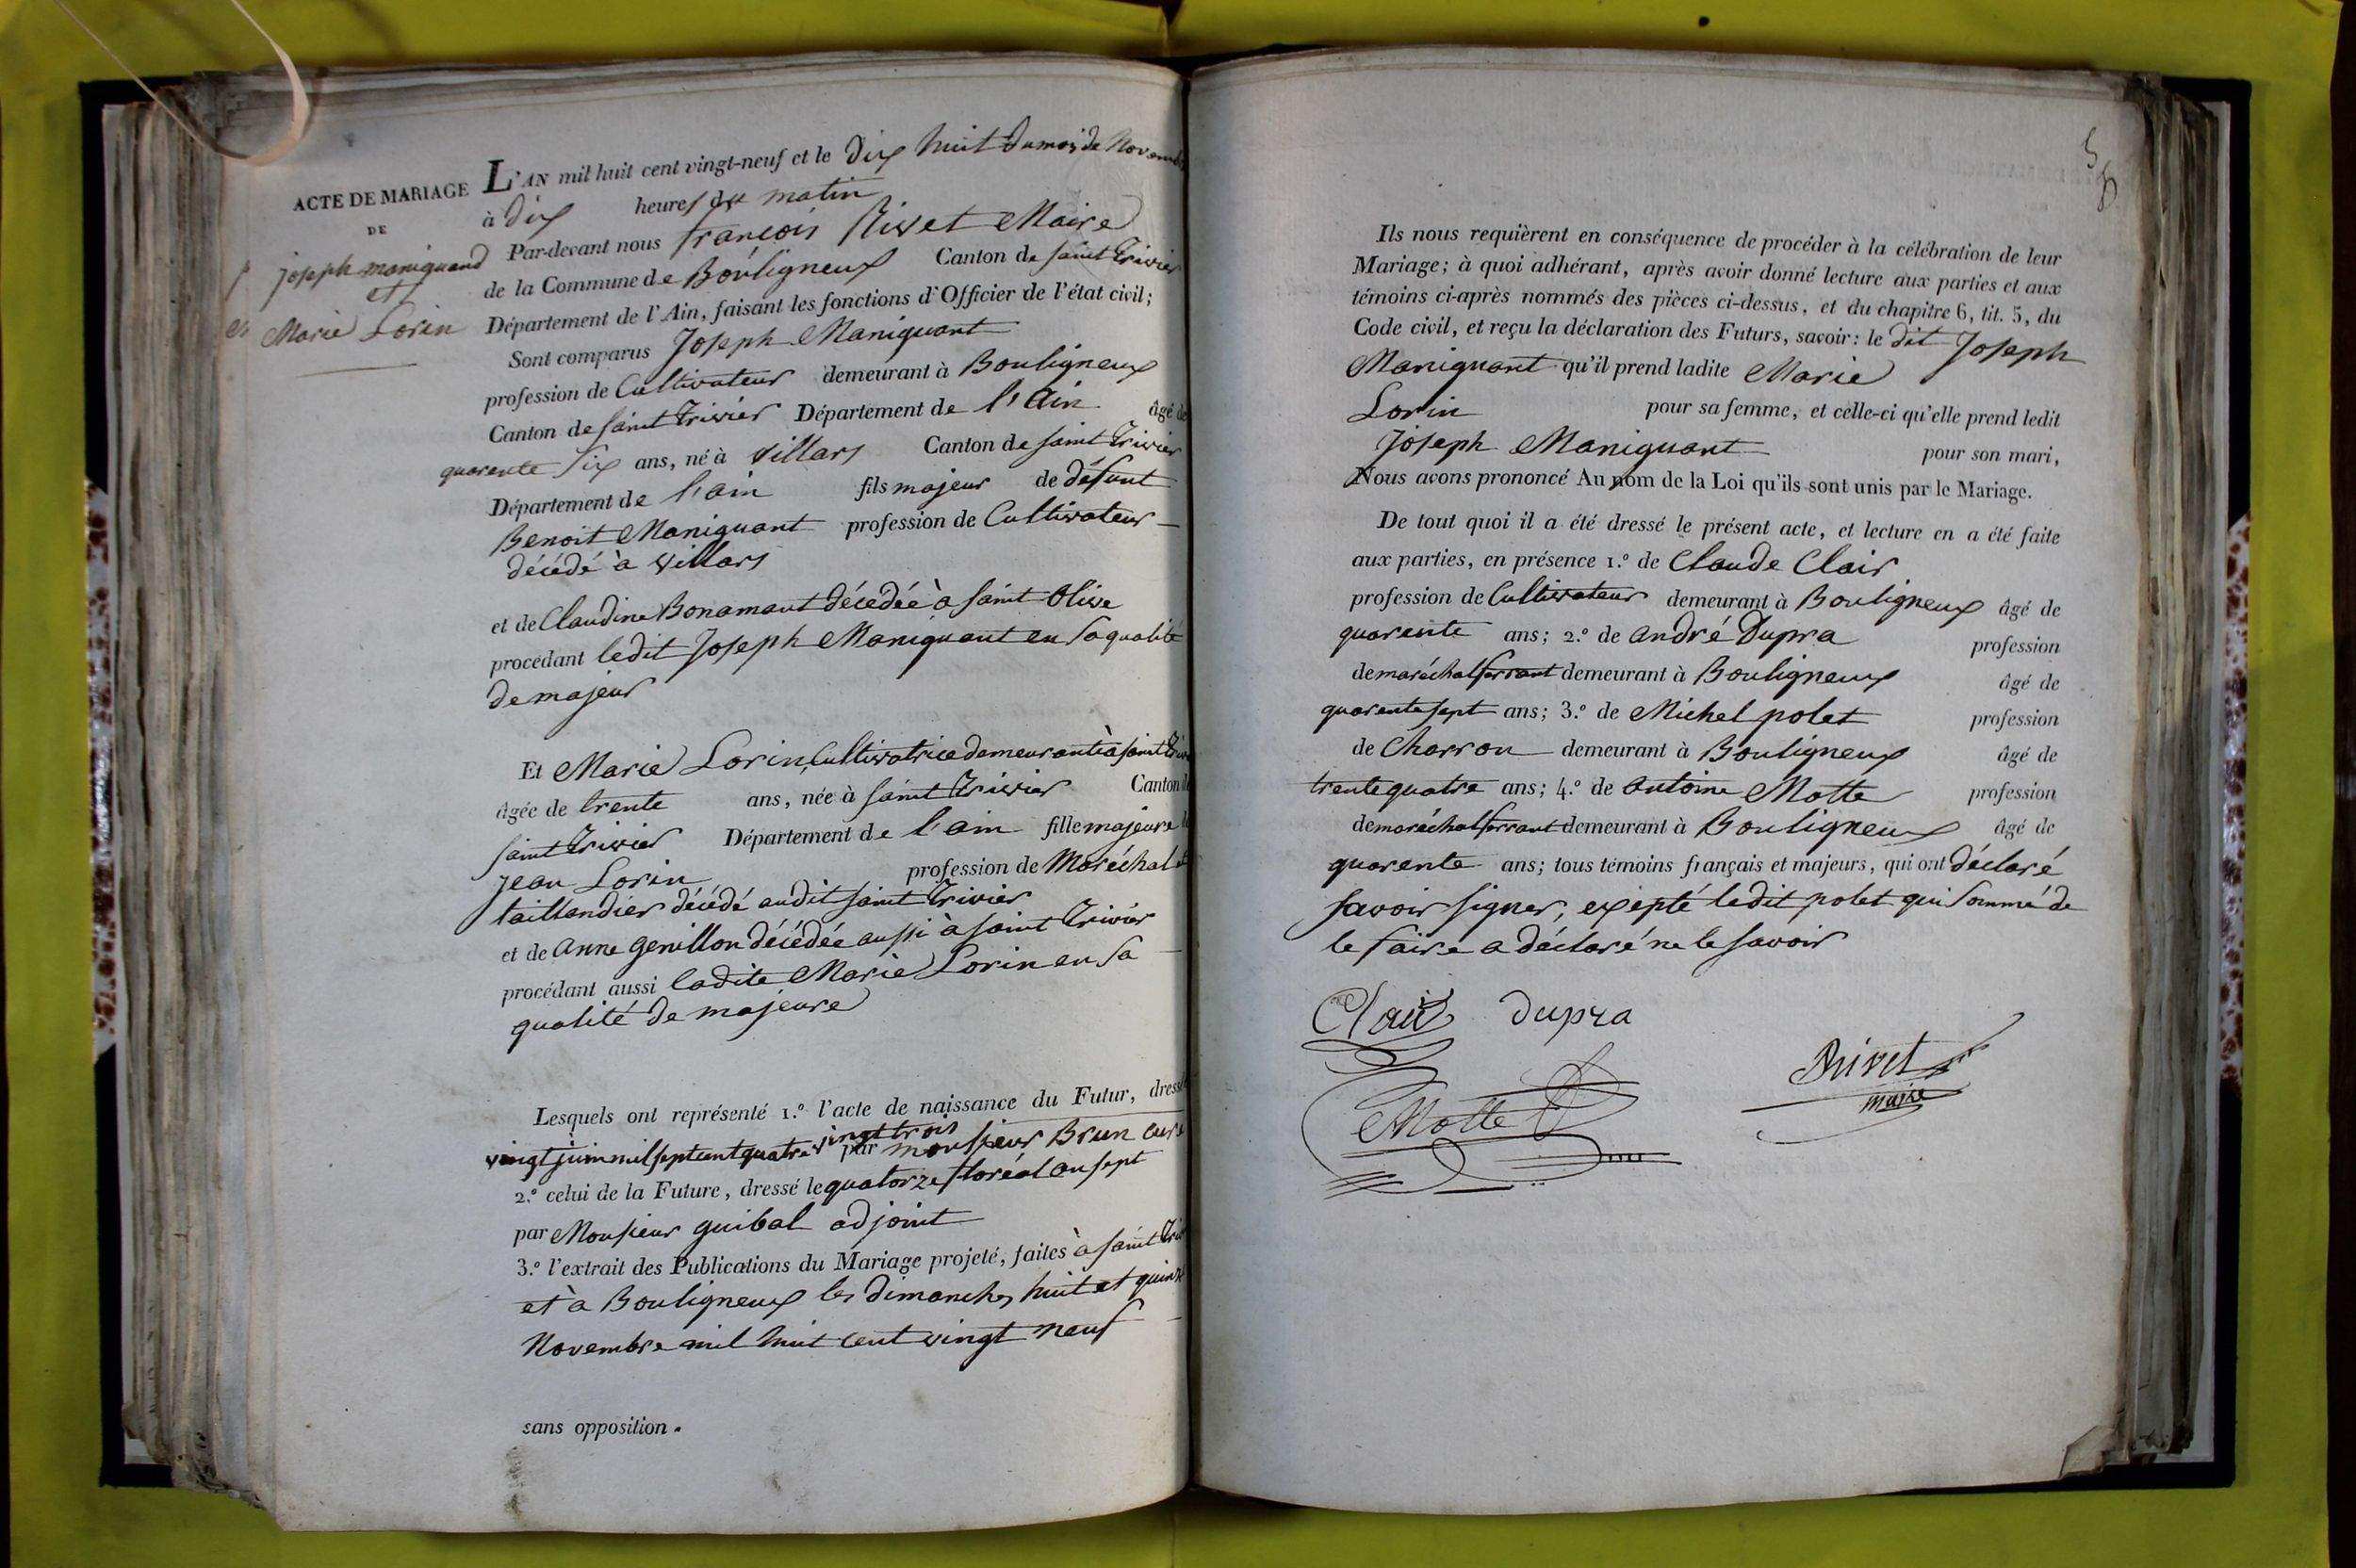 ACTE DE MARIAGE
DE
joseph maniquand
et
Marie Lorin
L'AN mil huit cent vingt-neuf et le dix huit du mois de Novembre
à dix heures du matin
Par-devant nous françois Rivet Maire
de la Commune de Bouligneux Canton de saint Trivier
Département de l'Ain, faisant les fonctions d'Officier de l'état civil;
Sont comparus Joseph Maniquant
profession de Cultivateur demeurant à Bouligneux
Canton de saint Trivier Département de l'Ain âgé de
quarente six ans, né à villars Canton de saint Trivier
Département de l'ain fils majeur de défunt
Benoit Maniquant profession de Cultivateur
décédé à villars
et de Claudine Bonamant décedée à saint Olive
procédant ledit Joseph Maniquant en sa qualité
de majeur
Et Marie Lorin, Cultivatrice demeurant à saint Trivier
âgée de trente ans, née à saint Trivier Canton de
saint Trivier Département de l'ain fille majeure de
jean Lorin profession de Maréchal
taillandier décédé audit saint Trivier
et de anne genillon décédée aussi à saint Trivier
procédant aussi ladite Marie Lorin en sa
qualité de majeure
Lesquels ont représenté 1.º l'acte de naissance du Futur, dressé
vingt juin mil sept cent quatre vingt trois par monsieur Brun curé
2.º celui de la Future, dressé le quatorze floréal an sept
par Monsieur guibal adjoint
3.º l'extrait des Publications du Mariage projeté, faites à saint Trivier
et à Bouligneux les dimanches huit et quinze
Novembre mil huit cent vingt neuf
sans opposition.
Ils nous requièrent en conséquence de procéder à la célébration de leur
Mariage; à quoi adhérant, après avoir donné lecture aux parties et aux
témoins ci-après nommés des pièces ci-dessus, et du chapitre 6, tit. 5, du
Code civil, et reçu la déclaration des Futurs, savoir: le dit Joseph
Maniquant qu'il prend ladite Marie
Lorin pour sa femme, et celle-ci qu'elle prend ledit
Joseph Maniquant pour son mari,
Nous avons prononcé Au nom de la Loi qu'ils sont unis par le Mariage.
De tout quoi il a été dressé le présent acte, et lecture en a été faite
aux parties, en présence 1.º de Claude Clair
profession de Cultivateur demeurant à Bouligneux âgé de
quarente ans; 2.º de andré Dupra profession
de maréchal ferrant demeurant à Bouligneux âgé de
quarente sept ans; 3.º de Michel polet profession
de Charron demeurant à Bouligneux âgé de
trente quatre ans; 4.º de antoine Motte profession
de maréchal ferrant demeurant à Bouligneux âgé de
quarente ans; tous témoins français et majeurs, qui ont déclaré
savoir signer, exepté ledit polet qui sommé de
le faire a déclaré ne le savoir
Clair dupra
Rivet
maire
Motte